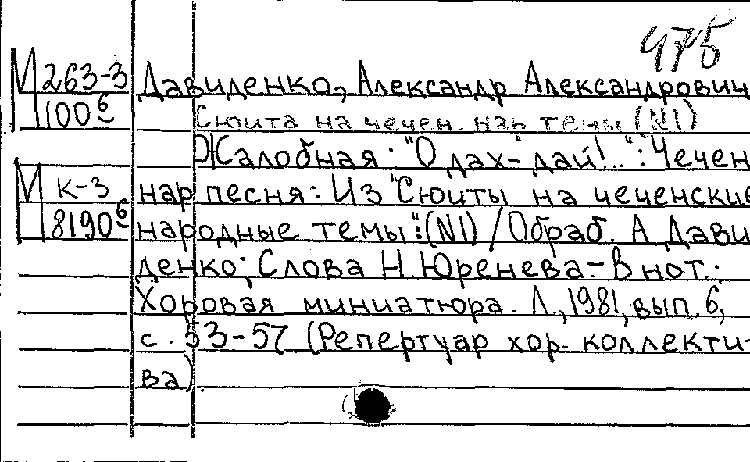 475
М 263-3 Давиденко, Александр Александрович
1100б Сюита на чечен. нар темы (N1)
Жалобная: "О дах-дай!..": Чечен
М К-3 нар песня: Из "Сюиты на чеченские
8190б народные темы":(N1) / Обраб. А Дави
денко; Слова Н Юренева - В нот.:
Хоровая миниатюра. Л., 1981, вып. 6,
с. 53-57 (Репертуар хор. коллекти-
ва)